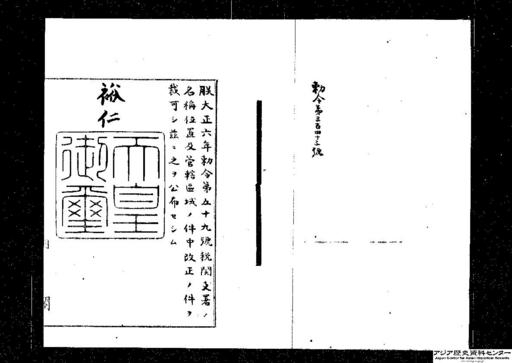 勅令第三百四十三號
朕大正六年勅令第五十九號税關支署ノ
名稱位置及管轄區域ノ件中改正ノ件ヲ
裁可シ茲ニ之ヲ公布セシム
裕仁
天皇
御璽
アジア歴史資料センター
Japan Center for Asian Historical Records